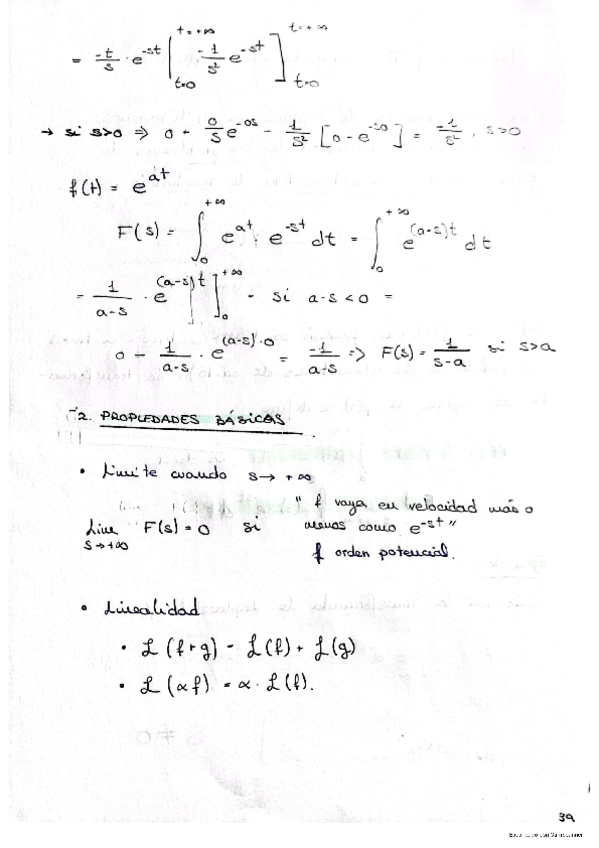 = -t/s · e^-st |_{t=0}^{t=+∞} - 1/s² e^-st ]_{t=0}^{t=+∞}
→ si s>0 ⇒ 0 + 0/s e^-0s - 1/s² [0 - e^-s0] = -1/s², s>0
f(t) = e^at
F(s) = ∫_0^{+∞} e^at · e^-st dt = ∫_0^{+∞} e^(a-s)t dt
= 1/(a-s) · e^(a-s)t ]_0^{+∞} - si a-s<0 =
0 - 1/(a-s) · e^(a-s)·0 = -1/(a-s) => F(s) = 1/(s-a) si s>a
2. PROPIEDADES BÁSICAS
• Límite cuando s→+∞
lim_{s→+∞} F(s) = 0 si "f vaya en velocidad más o
menos como e^-st"
f orden potencial.
• Linealidad
• L(f+g) = L(f) + L(g)
• L(αf) = α · L(f).
39